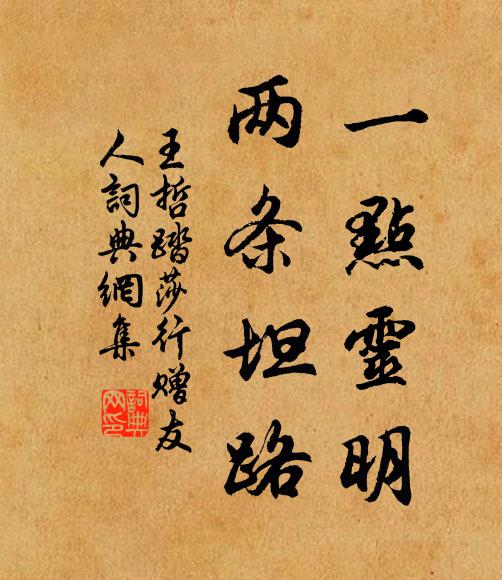 一點靈明
两条坦路
王哲踏莎行赠友
人詞典網集
詞典
网印